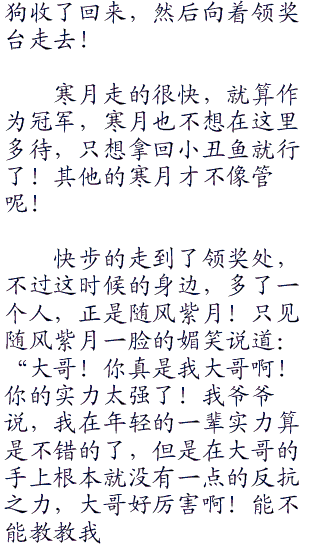 狗收了回来，然后向着领奖
台走去！
寒月走的很快，就算作
为冠军，寒月也不想在这里
多待，只想拿回小丑鱼就行
了！其他的寒月才不像管
呢！
快步的走到了领奖处，
不过这时候的身边，多了一
个人，正是随风紫月！只见
随风紫月一脸的媚笑说道：
“大哥！你真是我大哥啊！
你的实力太强了！我爷爷
说，我在年轻的一辈实力算
是不错的了，但是在大哥的
手上根本就没有一点的反抗
之力，大哥好厉害啊！能不
能教教我